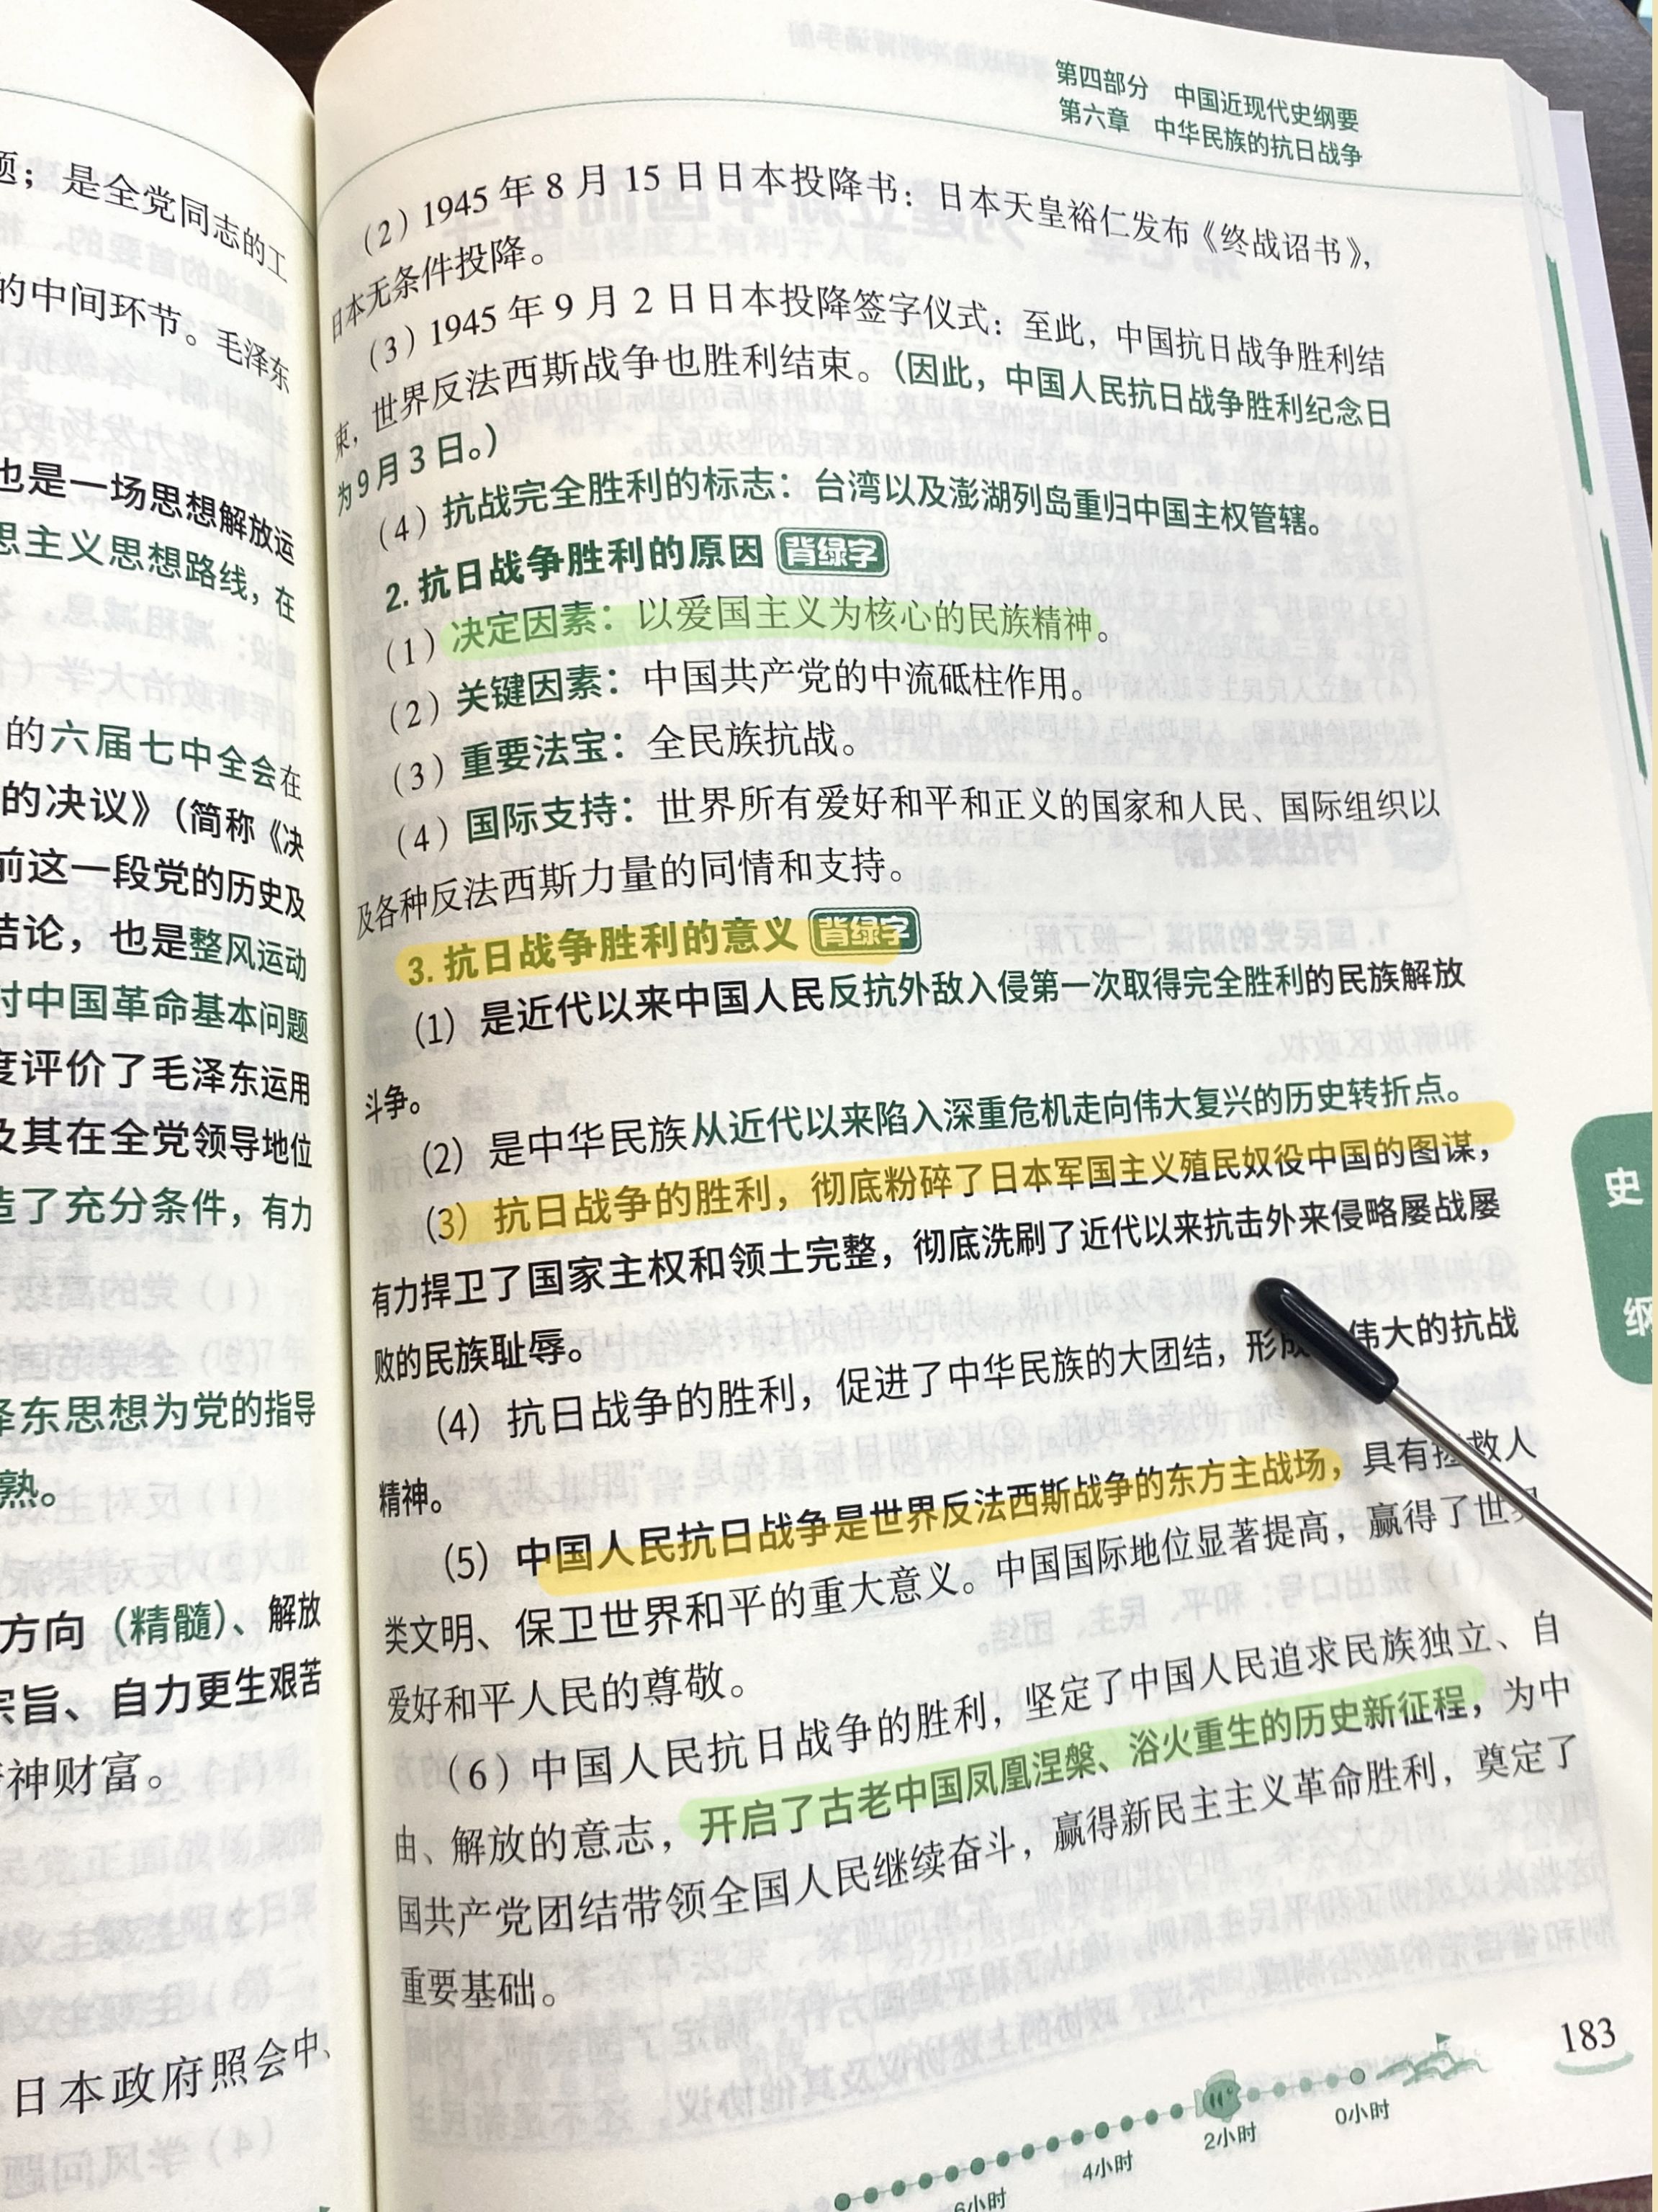 题；是全党同志的工
的中间环节。毛泽东
也是一场思想解放运
思主义思想路线，在
的六届七中全会在
的决议》（简称《决
前这一段党的历史及
结论，也是整风运动
对中国革命基本问题
度评价了毛泽东运用
及其在全党领导地位
造了充分条件，有力
泽东思想为党的指导
熟。
方向（精髓）、解放
宗旨、自力更生艰苦
神财富。
日本政府照会中、
第四部分 中国近现代史纲要
第六章 中华民族的抗日战争
（2）1945 年 8 月 15 日日本投降书：日本天皇裕仁发布《终战诏书》，
日本无条件投降。
（3）1945 年 9 月 2 日日本投降签字仪式：至此，中国抗日战争胜利结
束，世界反法西斯战争也胜利结束。（因此，中国人民抗日战争胜利纪念日
为9月3日。）
（4）抗战完全胜利的标志：台湾以及澎湖列岛重归中国主权管辖。
2. 抗日战争胜利的原因 背绿字
（1）决定因素：以爱国主义为核心的民族精神。
（2）关键因素：中国共产党的中流砥柱作用。
（3）重要法宝：全民族抗战。
（4）国际支持：世界所有爱好和平和正义的国家和人民、国际组织以
及各种反法西斯力量的同情和支持。
3. 抗日战争胜利的意义 背绿字
（1）是近代以来中国人民反抗外敌入侵第一次取得完全胜利的民族解放
斗争。
（2）是中华民族从近代以来陷入深重危机走向伟大复兴的历史转折点。
（3）抗日战争的胜利，彻底粉碎了日本军国主义殖民奴役中国的图谋，
有力捍卫了国家主权和领土完整，彻底洗刷了近代以来抗击外来侵略屡战屡
败的民族耻辱。
（4）抗日战争的胜利，促进了中华民族的大团结，形成 伟大的抗战
精神。
（5）中国人民抗日战争是世界反法西斯战争的东方主战场，具有拯救人
类文明、保卫世界和平的重大意义。中国国际地位显著提高，赢得了世界
爱好和平人民的尊敬。
（6）中国人民抗日战争的胜利，坚定了中国人民追求民族独立、自
由、解放的意志，开启了古老中国凤凰涅槃、浴火重生的历史新征程，为中
国共产党团结带领全国人民继续奋斗，赢得新民主主义革命胜利，奠定了
重要基础。
史
纲
183
6小时
4小时
2小时
0小时